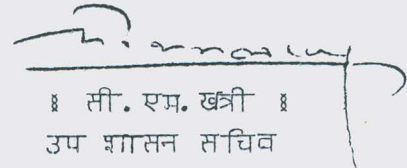 ॥ सी. एम. खत्री ॥
उप शासन सचिव